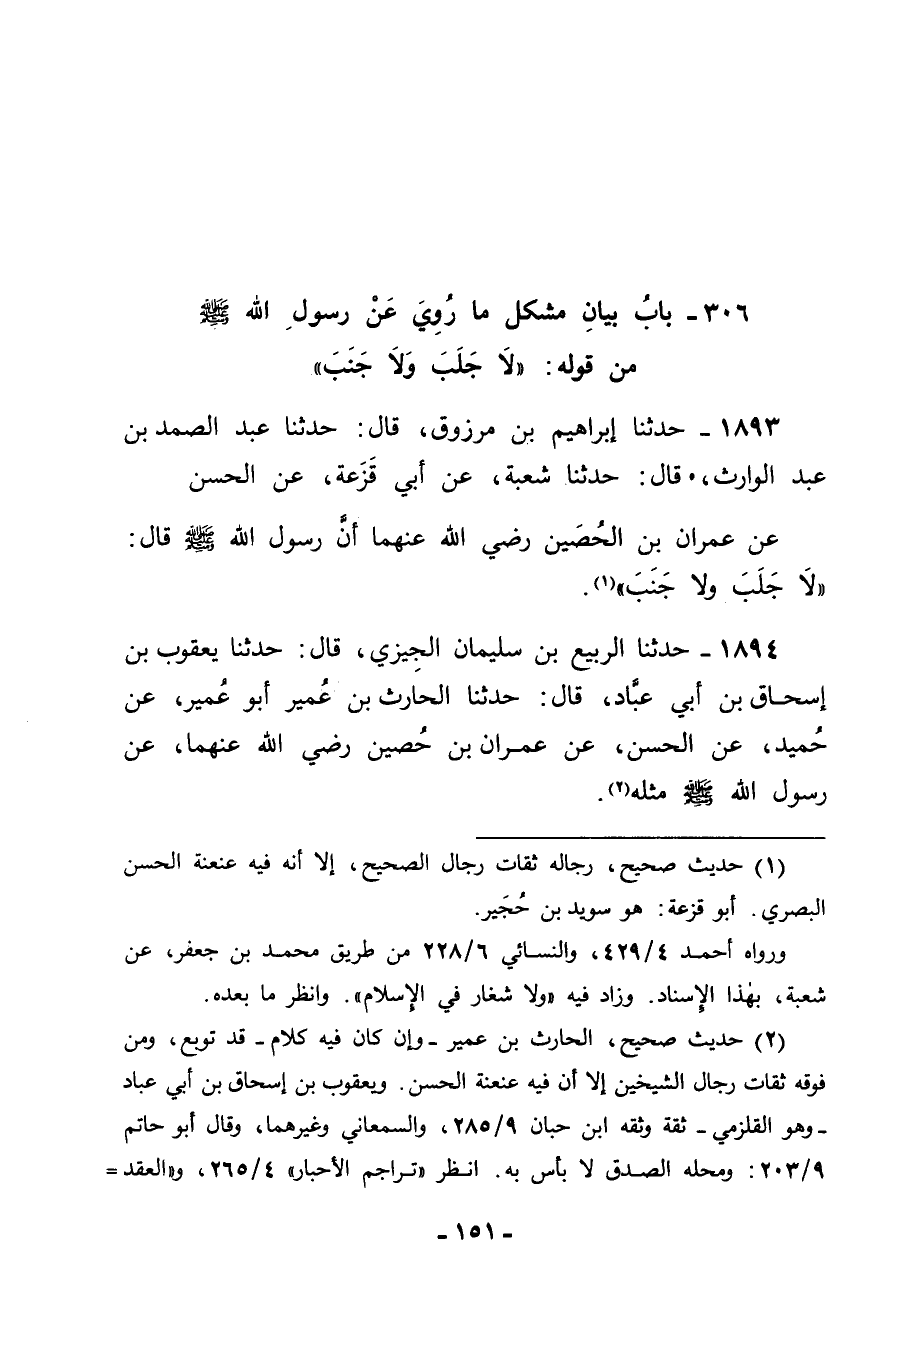 ٣٠٦ـ بابُ بيانِ مشكل ما رُوِيَ عَنْ رسولِ الله ﷺ
من قوله: «لَا جَلَبَ وَلَا جَنَبَ»
١٨٩٣ ـ حدثنا إبراهيم بن مرزوق، قال: حدثنا عبد الصمد بن
عبد الوارث، قال: حدثنا شعبة، عن أبي قَزَعة، عن الحسن
عن عمران بن الحُصَين رضي الله عنهما أنَّ رسول الله ﷺ قال:
«لَا جَلَبَ ولا جَنَبَ»(١).
١٨٩٤ ـ حدثنا الربيع بن سليمان الجِيزي، قال: حدثنا يعقوب بن
إسحاق بن أبي عبَّاد، قال: حدثنا الحارث بن عُمير أبو عُمير، عن
حُميد، عن الحسن، عن عمران بن حُصين رضي الله عنهما، عن
رسول الله ﷺ مثله(٢).
(١) حديث صحيح، رجاله ثقات رجال الصحيح، إلا أنه فيه عنعنة الحسن
البصري. أبو قزعة: هو سويد بن حُجَير.
ورواه أحمد ٤٢٩/٤، والنسائي ٢٢٨/٦ من طريق محمد بن جعفر، عن
شعبة، بهٰذا الإسناد. وزاد فيه «ولا شغار في الإسلام». وانظر ما بعده.
(٢) حديث صحيح، الحارث بن عمير ـ وإن كان فيه كلام ـ قد توبع، ومن
فوقه ثقات رجال الشيخين إلا أن فيه عنعنة الحسن. ويعقوب بن إسحاق بن أبي عباد
ـ وهو القلزمي ـ ثقة وثقه ابن حبان ٢٨٥/٩، والسمعاني وغيرهما، وقال أبو حاتم
٢٠٣/٩: ومحله الصدق لا بأس به. انظر «تراجم الأحبار» ٢٦٥/٤، و«العقد =
ـ ١٥١ ـ